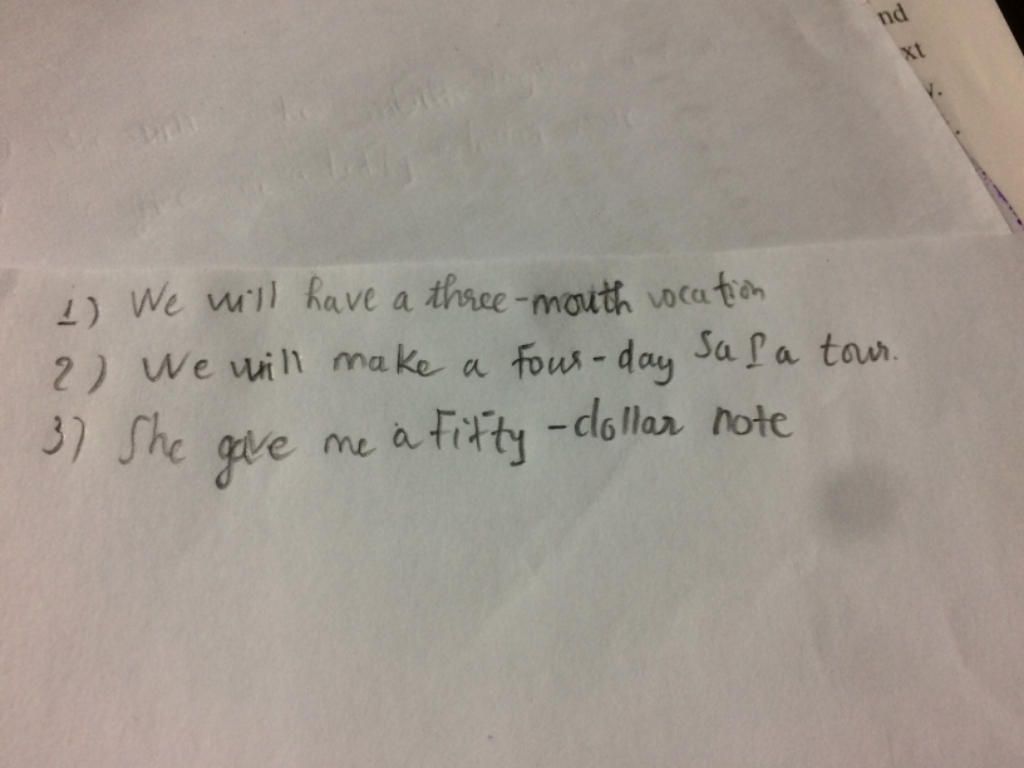 nd
xt
y.
1) We will have a three-mouth vocation
2) We will make a four-day Sa Pa tour.
3) She gave me a fifty-dollar note